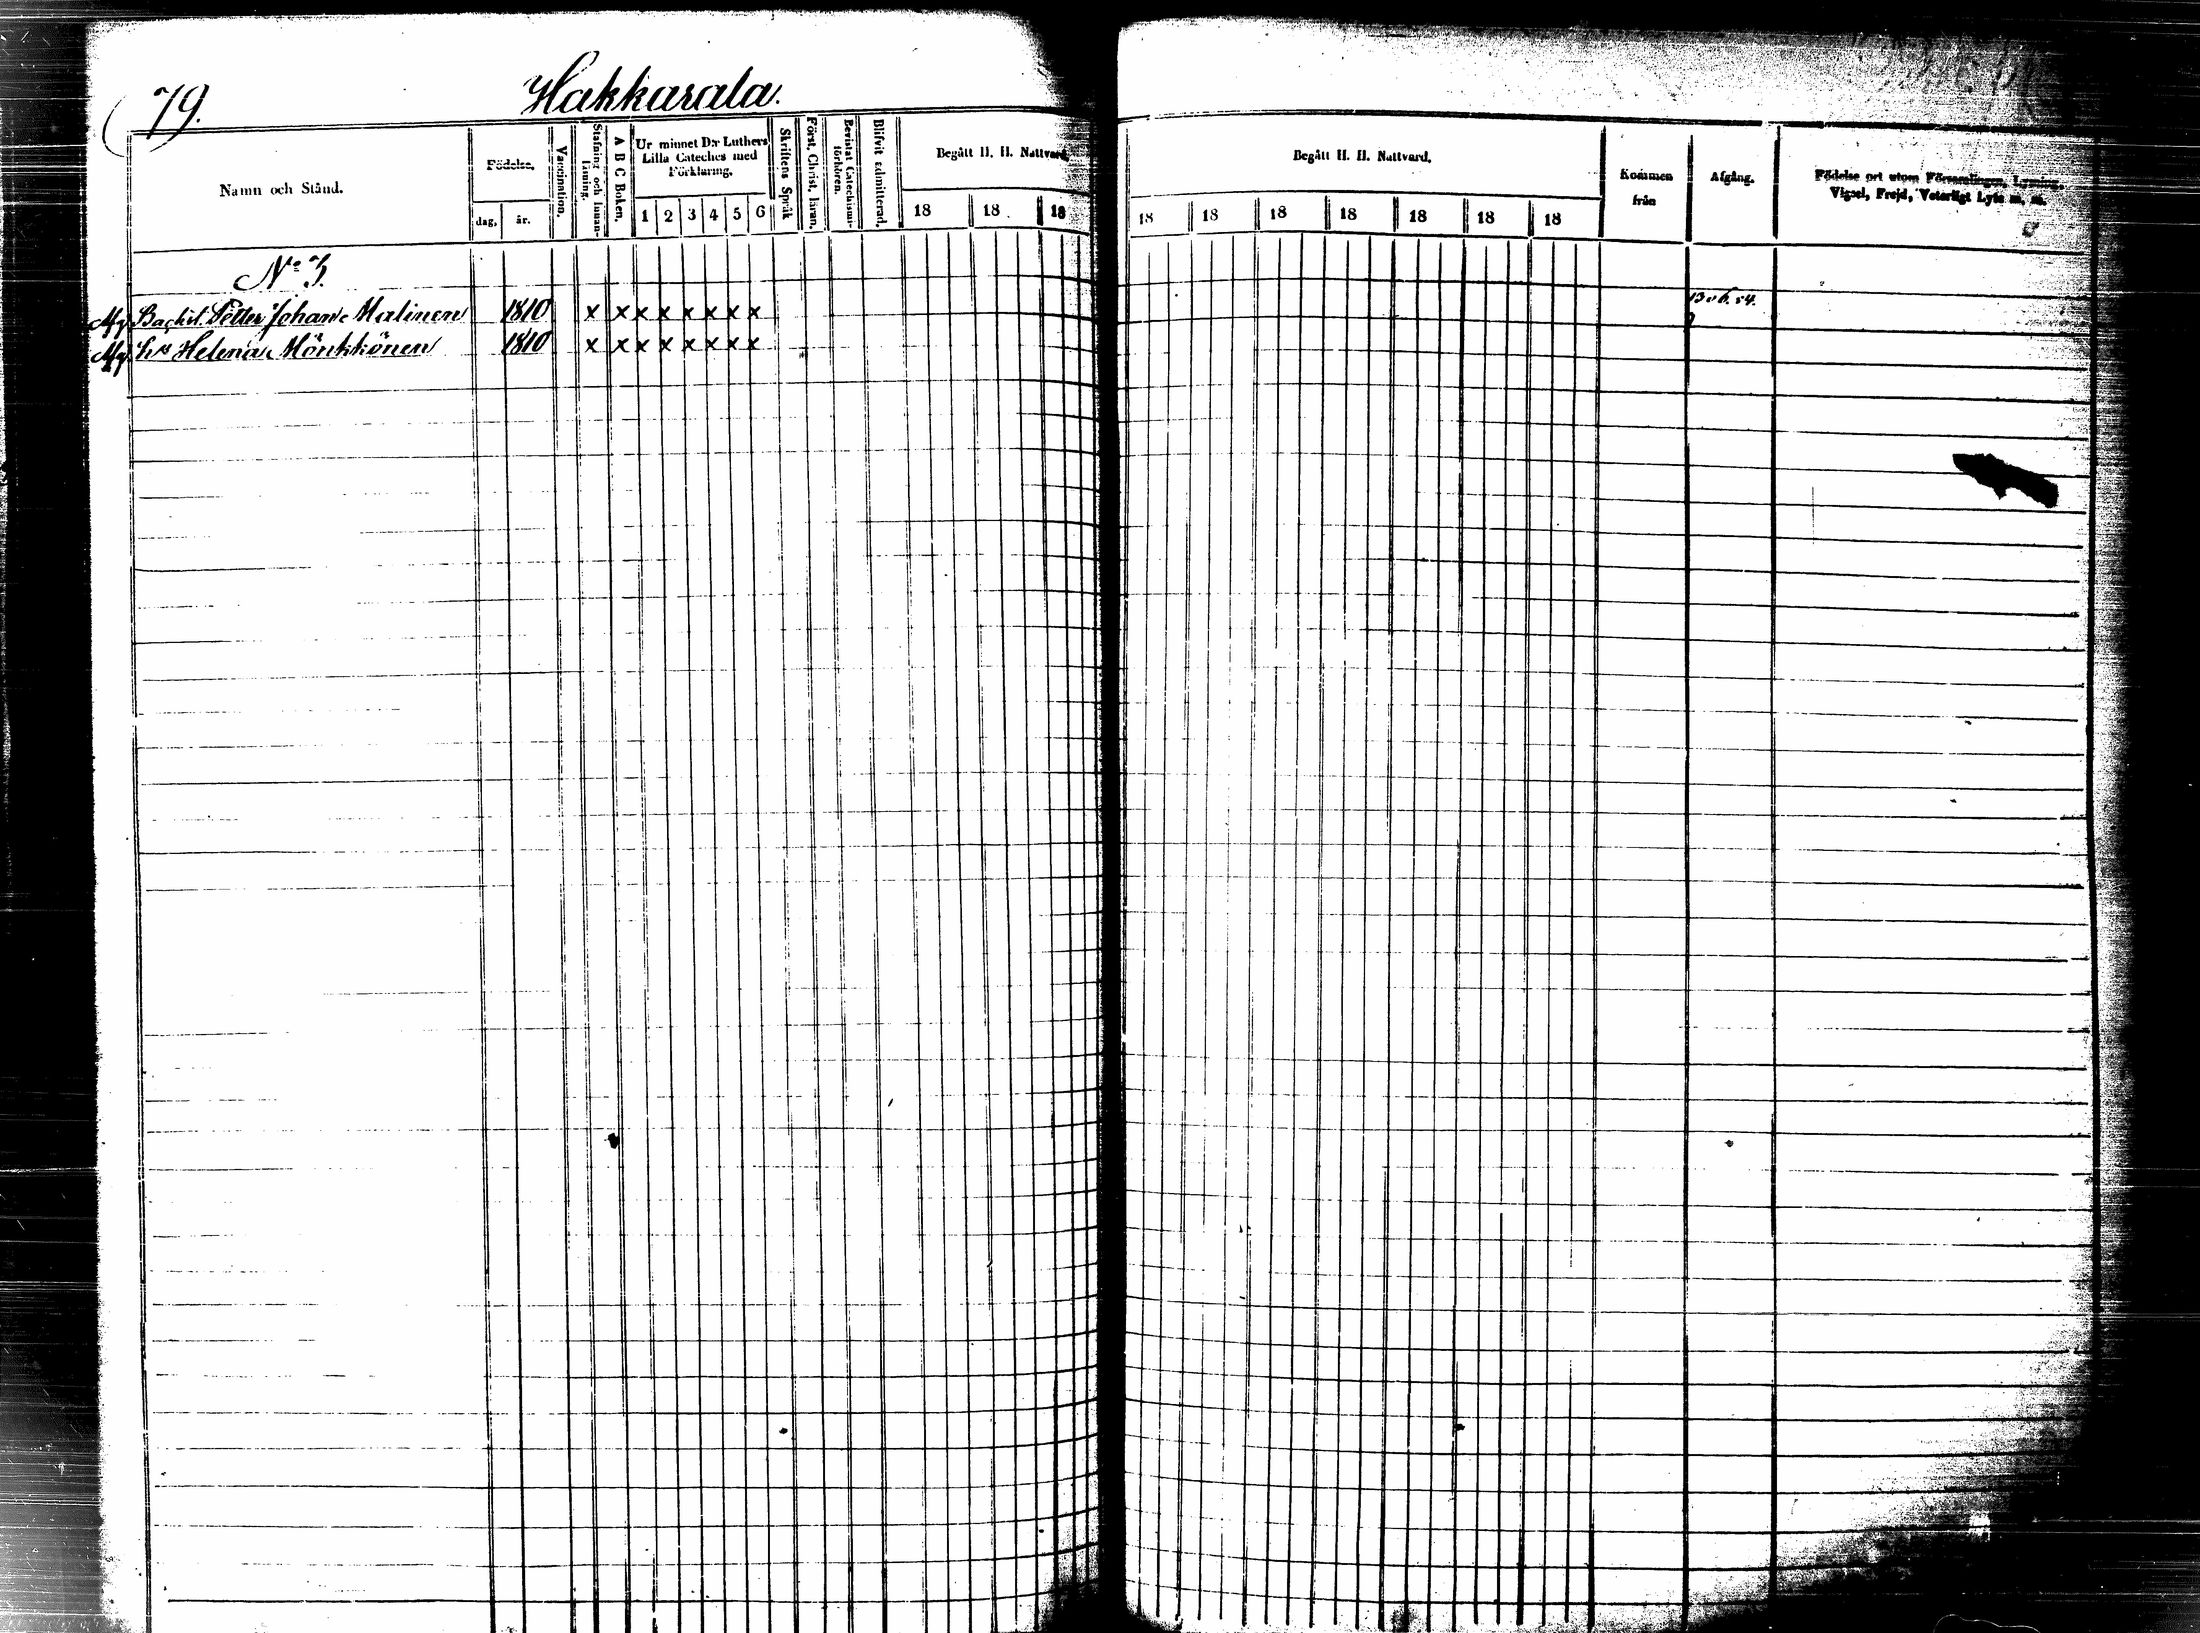 79.
Hakkarala.
Namn och Stånd.
Födelse,
dag, år.
Vaccination.
Stafning och Innanläsning.
A B C Boken.
Ur minnet D:r Luthers Lilla Cateches med Förklaring.
1 2 3 4 5 6
Skriftens Språk
Först. Christ. läran.
Bevistat Catechismiförhören.
Blifvit admitterad.
Begått H. H. Nattvard.
18 18 18
Begått H. H. Nattvard.
18 18 18 18 18 18 18
Kommen från
Afgång.
Födelse ort utom Församlingen, Lysning, Vigsel, Frejd, Veterligt Lyte m. m.
No 3.
Afg Petter Johan Malinen 1810 x x x x x x x x
Afg Hs Helena Mönkkönen 1810 x x x x x x x x